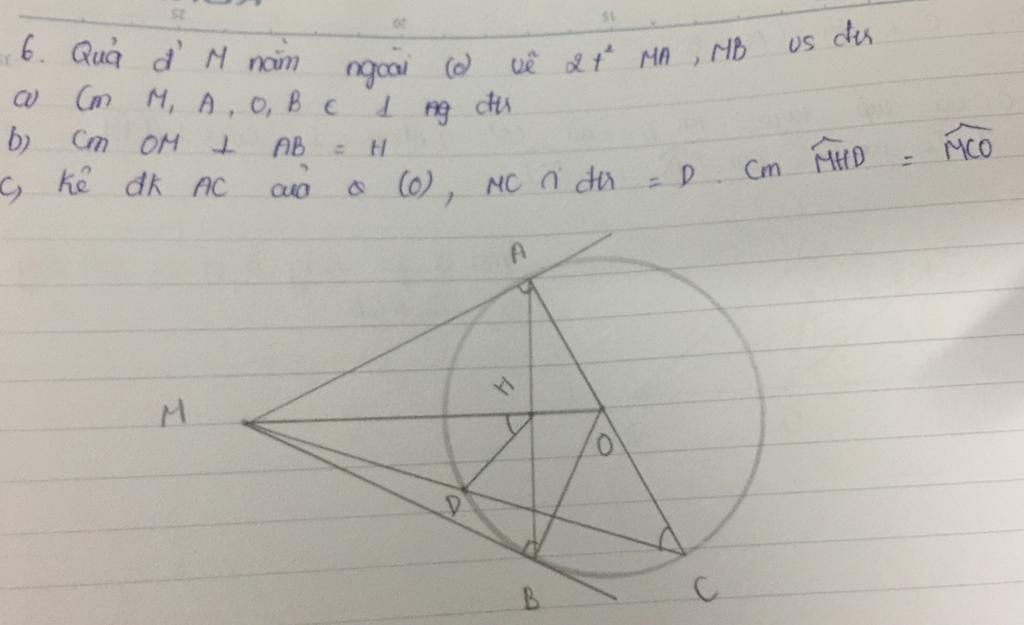 6. Quả đ' M nằm ngoài (O) vẽ 2 t² MA, MB vs đtr
a) Cm M, A, O, B ϵ 1 ng đtr
b) Cm OM ⊥ AB = H
c, Kẻ đk AC của (O), MC ∩ đtr = D. Cm \widehat{MHD} = \widehat{MCO}
A
H
M
O
D
B
C